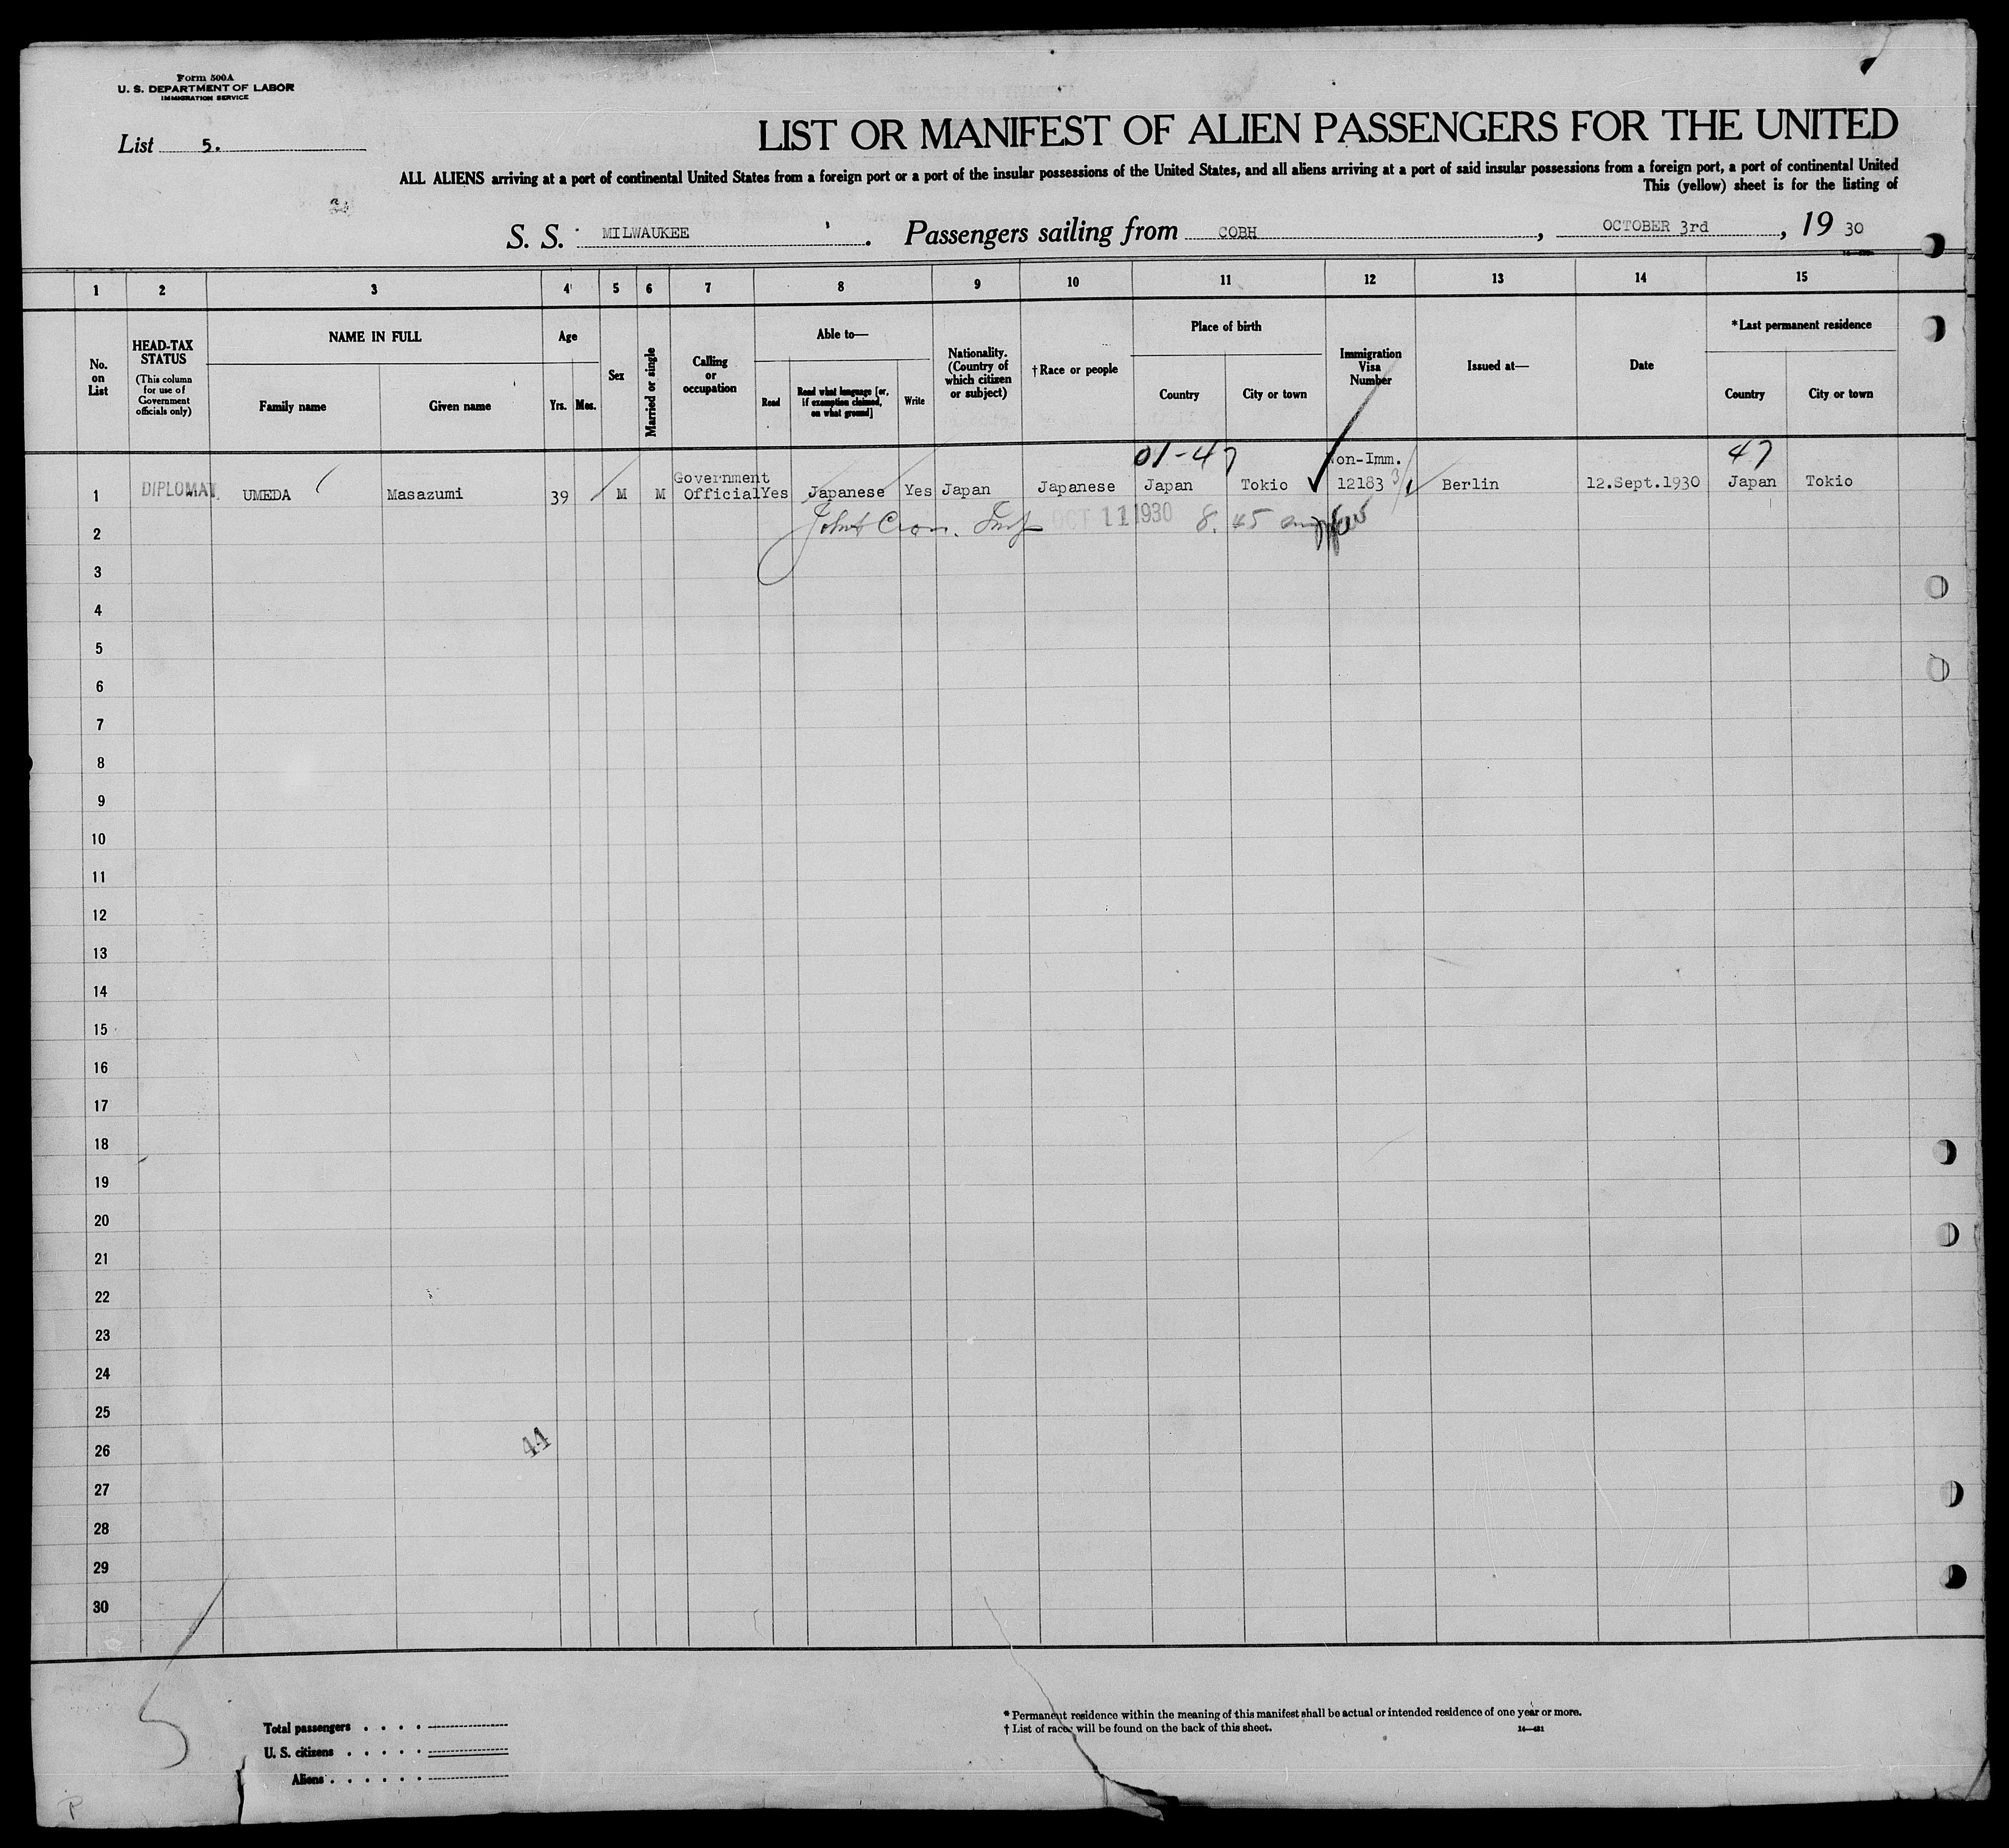 Form 500A
U. S. DEPARTMENT OF LABOR
IMMIGRATION SERVICE
List 5.
LIST OR MANIFEST OF ALIEN PASSENGERS FOR THE UNITED
ALL ALIENS arriving at a port of continental United States from a foreign port or a port of the insular possessions of the United States, and all aliens arriving at a port of said insular possessions from a foreign port, a port of continental United
This (yellow) sheet is for the listing of
S. S. MILWAUKEE . Passengers sailing from COBH , OCTOBER 3rd , 19 30
1 2 3 4 5 6 7 8 9 10 11 12 13 14 15
No. on List
HEAD-TAX STATUS
(This column for use of Government officials only)
NAME IN FULL
Family name Given name
Age
Yrs. Mos.
Sex
Married or single
Calling or occupation
Able to—
Read
Read what language [or, if exemption claimed, on what ground]
Write
Nationality. (Country of which citizen or subject)
†Race or people
Place of birth
Country City or town
Immigration Visa Number
Issued at—
Date
*Last permanent residence
Country City or town
01-47 47
1 DIPLOMAT UMEDA Masazumi 39 M M Government Official Yes Japanese Yes Japan Japanese Japan Tokio Non-Imm. 12183 Berlin 12.Sept.1930 Japan Tokio
2 OCT 11 1930 8.45
3
4
5
6
7
8
9
10
11
12
13
14
15
16
17
18
19
20
21
22
23
24
25
26 44
27
28
29
30
5
Total passengers . . . .
U. S. citizens . . . . .
Aliens . . . . . .
* Permanent residence within the meaning of this manifest shall be actual or intended residence of one year or more.
† List of races will be found on the back of this sheet.
P